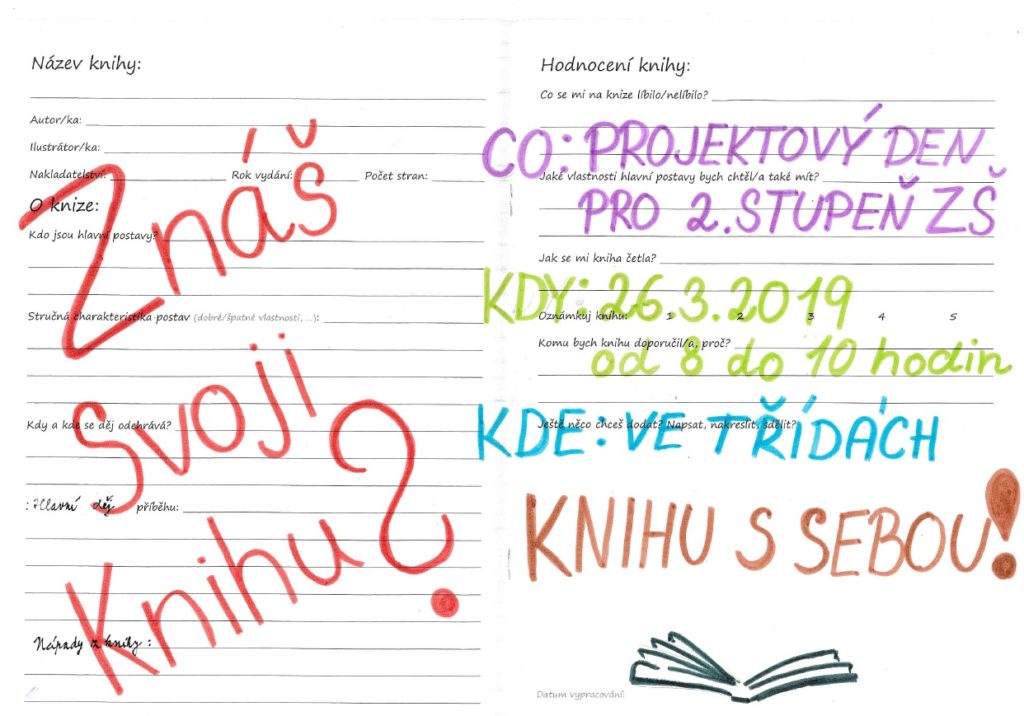 Název knihy:
Autor/ka:
Ilustrátor/ka:
Nakladatelství: Rok vydání: Počet stran:
O knize:
Kdo jsou hlavní postavy?
Stručná charakteristika postav (dobré/špatné vlastnosti, ...):
Kdy a kde se děj odehrává?
: Hlavní děj příběhu:
Nápady z knihy :
Znáš
Svoji
Knihu?
Hodnocení knihy:
Co se mi na knize líbilo/nelíbilo?
CO: PROJEKTOVÝ DEN
Jaké vlastnosti hlavní postavy bych chtěl/a také mít?
PRO 2. STUPEŇ ZŠ
Jak se mi kniha četla?
KDY: 26.3.2019
Oznámkuj knihu: 1 2 3 4 5
Komu bych knihu doporučil/a, proč?
od 8 do 10 hodin
KDE: VE TŘÍDÁCH
Ještě něco chceš dodat? Napsat, nakreslit, sdělit?
KNIHU S SEBOU!
Datum vypracování: